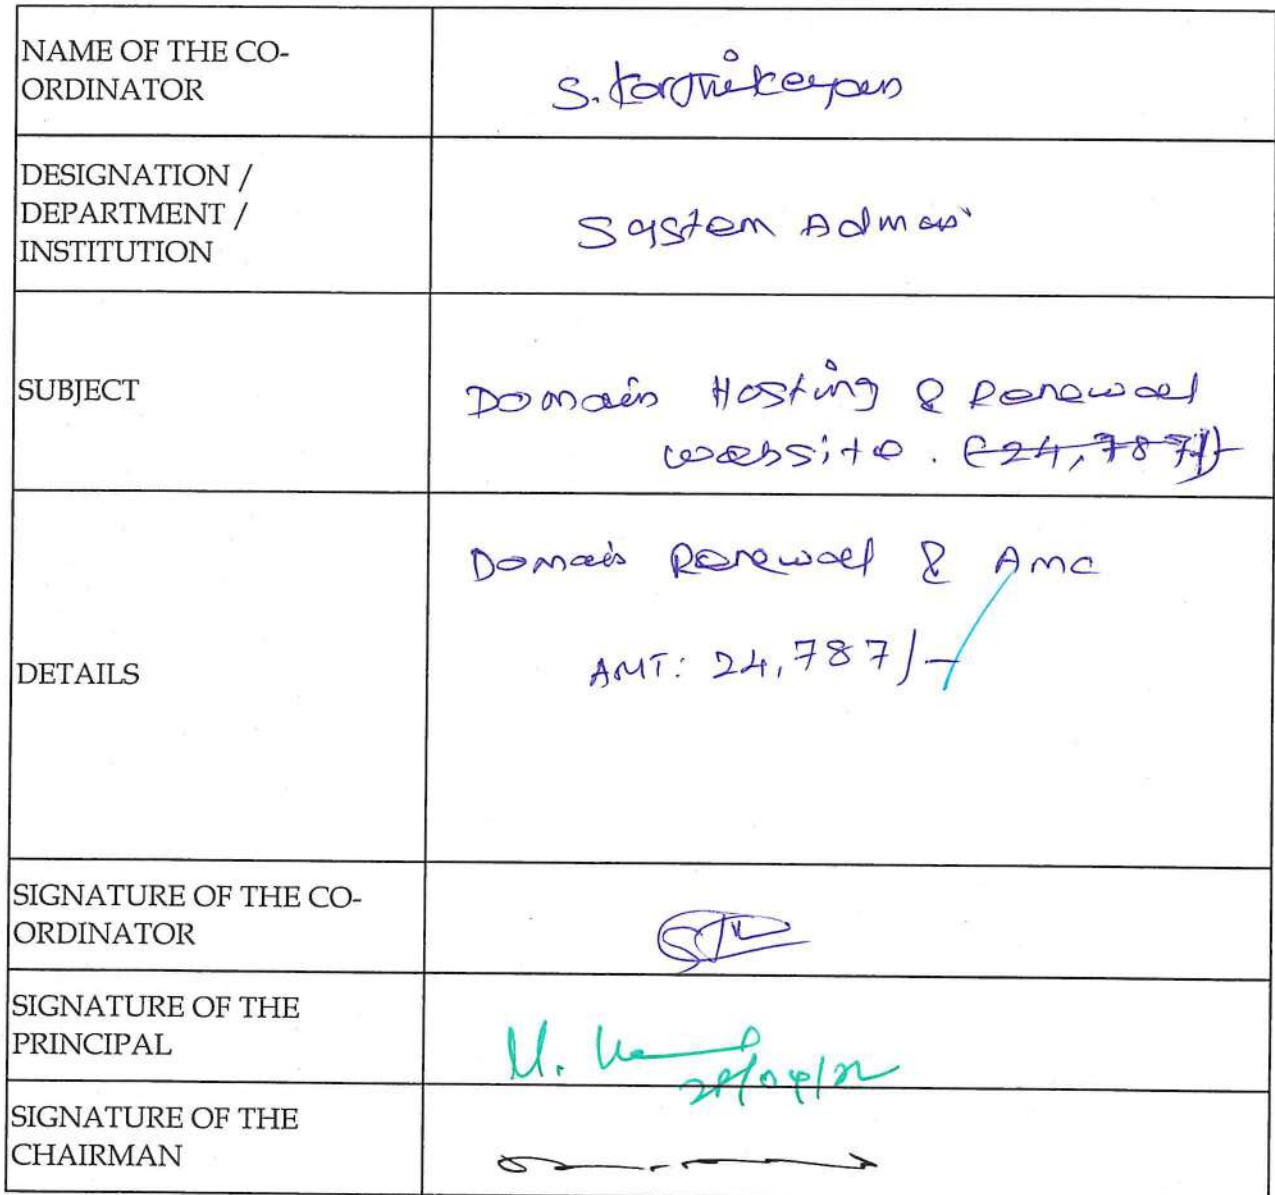 NAME OF THE CO-
ORDINATOR
S. Karthikeyan
DESIGNATION /
DEPARTMENT /
INSTITUTION
System Admin
SUBJECT
Domain Hosting & Renewal
website. (24,787/-)
DETAILS
Domain Renewal & Amc
AMT: 24,787/-
SIGNATURE OF THE CO-
ORDINATOR
SIGNATURE OF THE
PRINCIPAL
SIGNATURE OF THE
CHAIRMAN